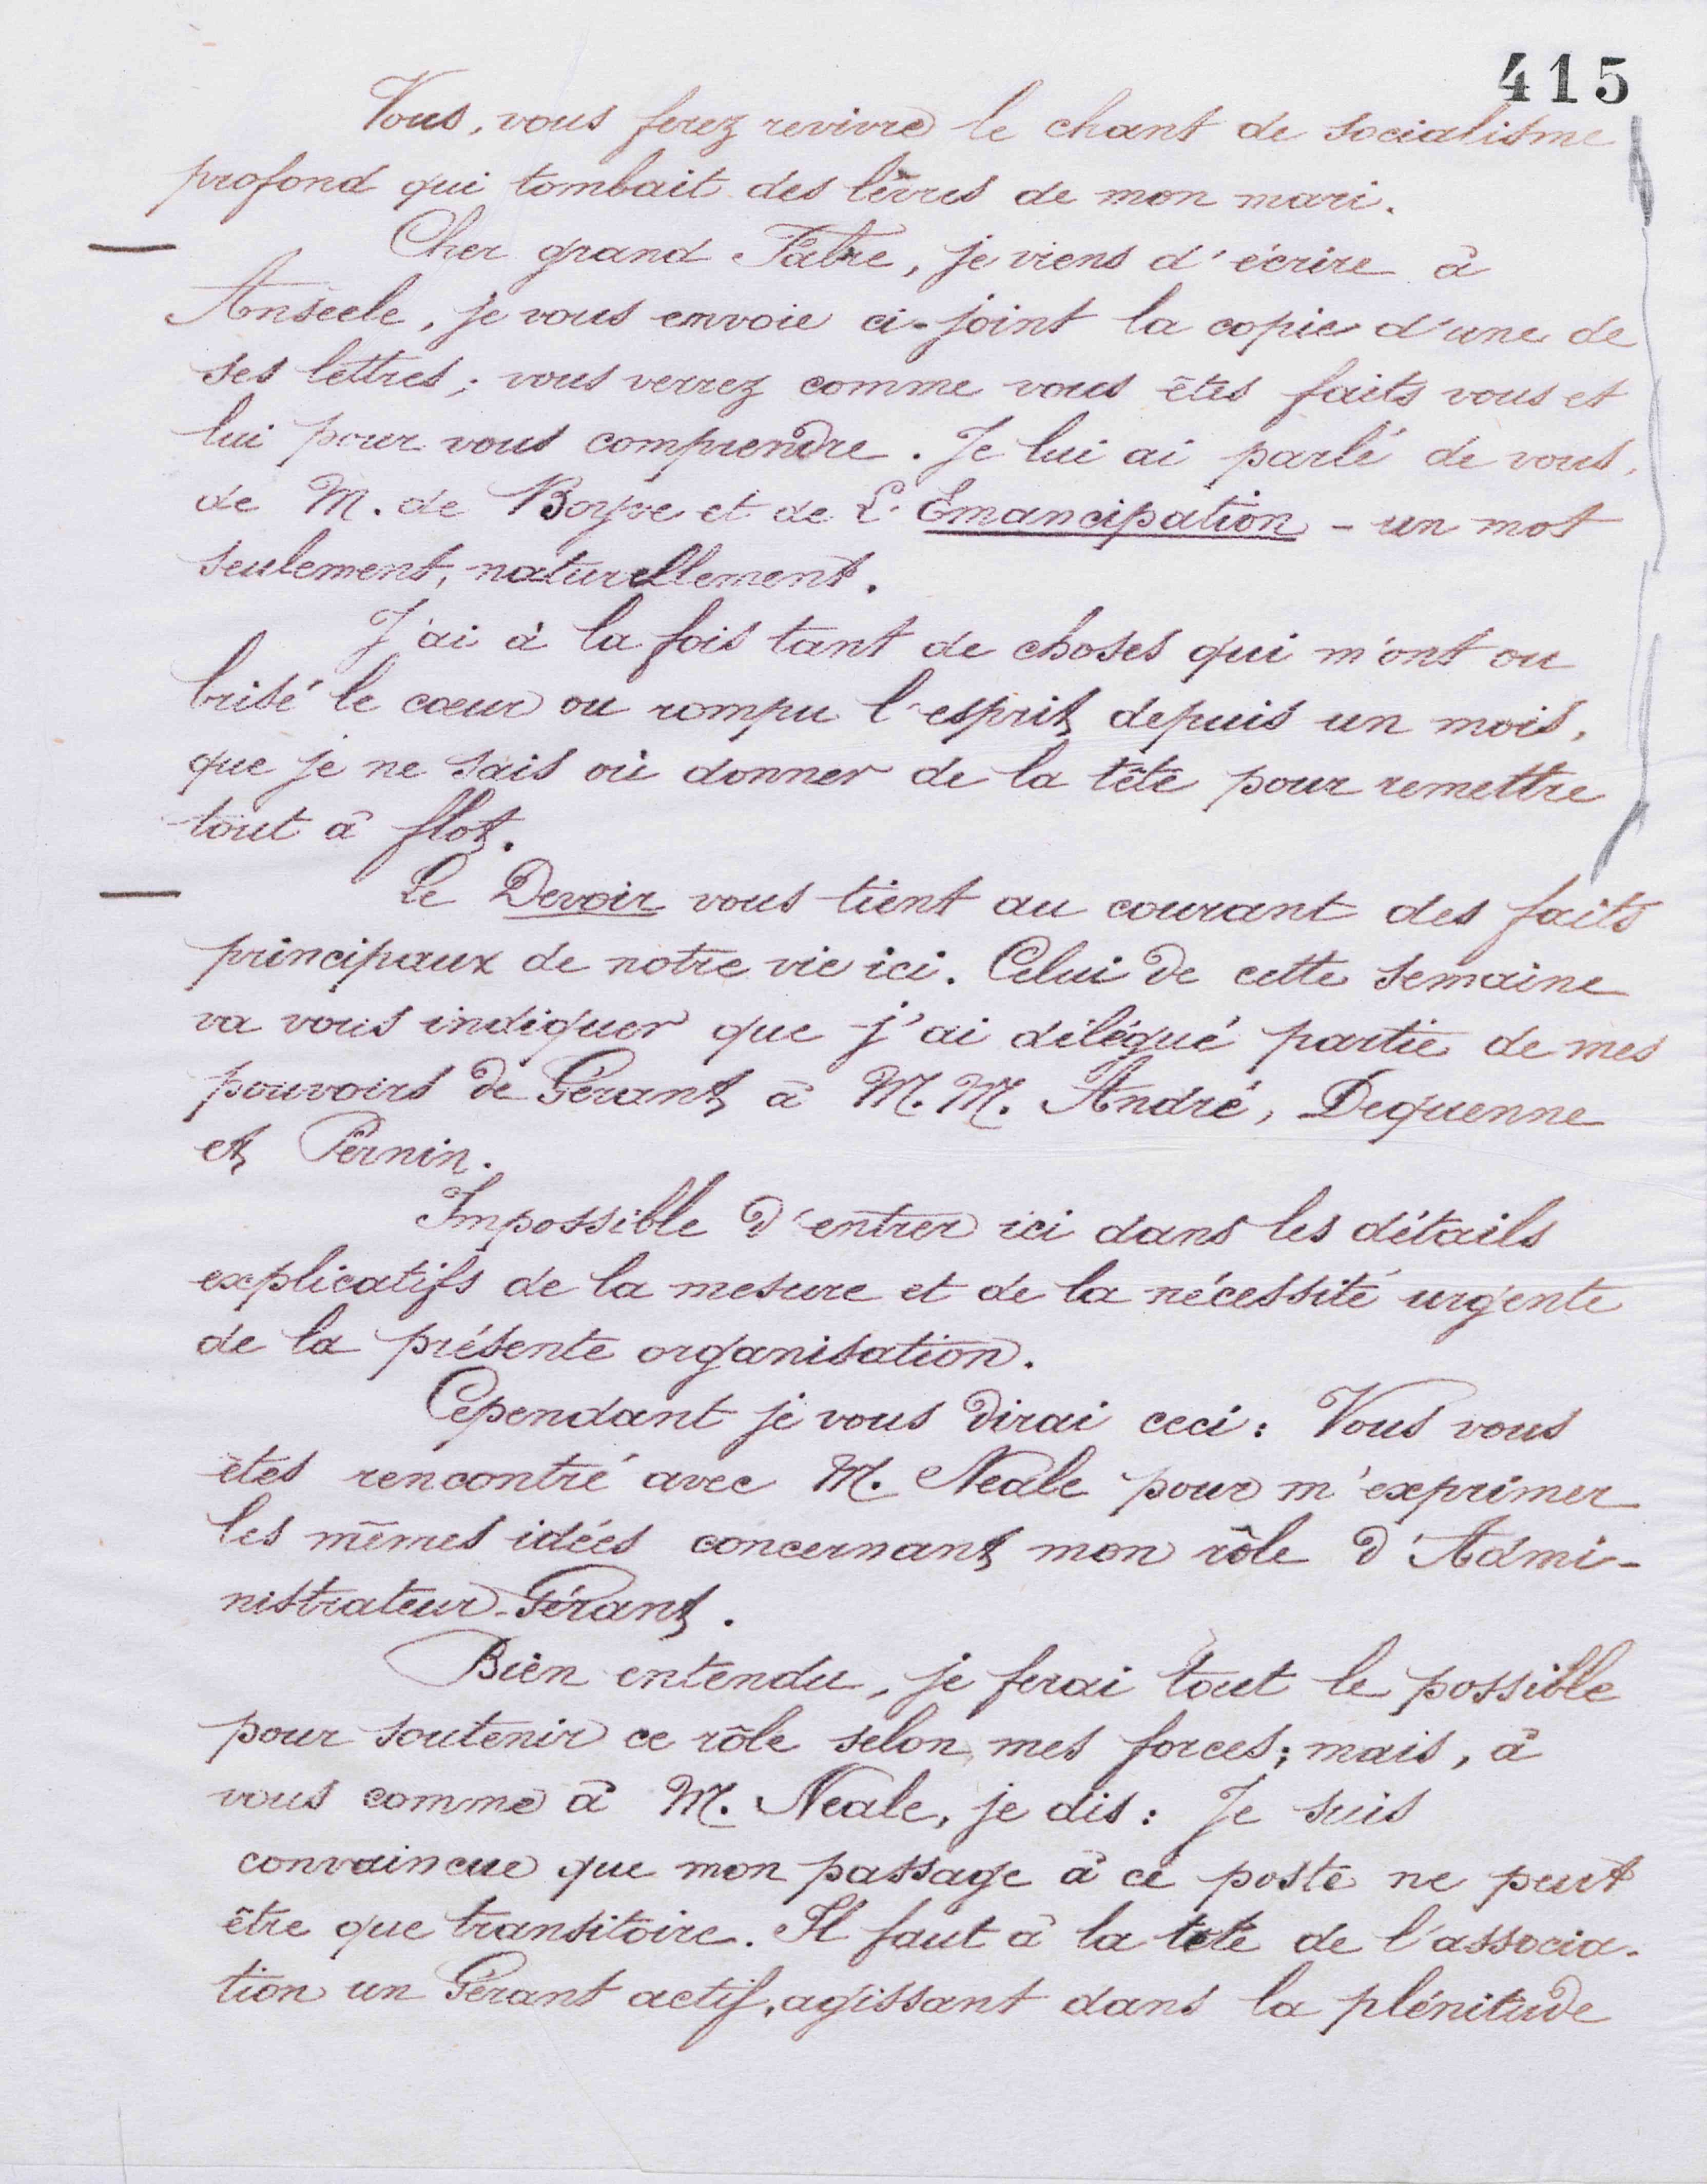 415
Vous, vous ferez revivre le chant de socialisme
profond qui tombait des lèvres de mon mari.
Cher grand Fabre, je viens d'écrire à
Anseele, je vous envoie ci-joint la copie d'une de
ses lettres; vous verrez comme vous êtes faits vous et
lui pour vous comprendre. Je lui ai parlé de vous,
de M. de Boyve et de L'Emancipation - un mot
seulement, naturellement.
J'ai à la fois tant de choses qui m'ont ou
brisé le cœur ou rompu l'esprit depuis un mois,
que je ne sais où donner de la tête pour remettre
tout à flot.
Le Devoir vous tient au courant des faits
principaux de notre vie ici. Celui de cette semaine
va vous indiquer que j'ai délégué partie de mes
pouvoirs de Gérant à M.M. André, Dequenne
et Pernin.
Impossible d'entrer ici dans les détails
explicatifs de la mesure et de la nécessité urgente
de la présente organisation.
Cependant je vous dirai ceci: Vous vous
êtes rencontré avec M. Neale pour m'exprimer
les mêmes idées concernant mon rôle d'Admi-
nistrateur-Gérant.
Bien entendu, je ferai tout le possible
pour soutenir ce rôle selon mes forces; mais, à
vous comme à M. Neale, je dis: Je suis
convaincue que mon passage à ce poste ne peut
être que transitoire. Il faut à la tête de l'associa-
tion un Gérant actif, agissant dans la plénitude